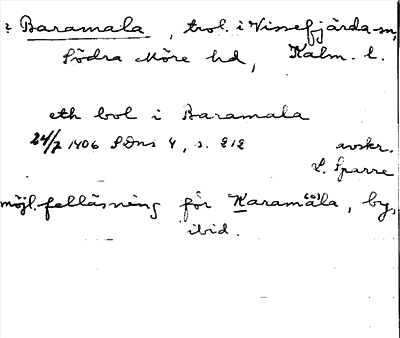 ? Baramala, trol. i Vissefjärda sn,
Södra Möre hd, Kalm. l.
eth bol i Baramala
24/7 1406 SDns 1, s. 212
avskr.
L. Sparre
möjl. felläsning för Karamåla, by,
(o)
ibid.